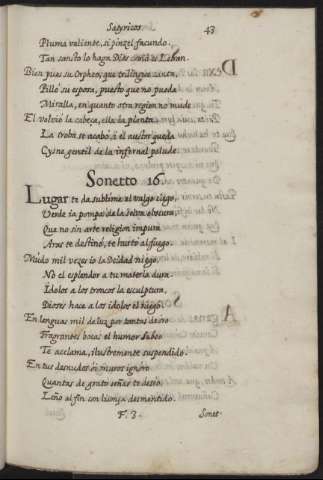 Satyricos. 43
Pluma valiente, si pinzel facundo.
Tan santo lo haga Dios como es Letran.
Bien pues su Orpheo, que trilingue canta,
Pilló su esposa, puesto que no pueda
Miralla, en quanto otra region no mude
El volvió la cabeça, ella la planta
La troba se acabó, i el auctor queda
Cysne gentil de la infernal palude.
Sonetto 16.
Lugar te da sublime el vulgo ciego,
Verde ia pompa de la selva obscura
Que no sin arte religion impura
Aras te destinó, te hurtó al fuego.
Mudo mil vezes io la Deidad niego,
No el esplendor a tu materia dura
Idolos a los troncos la esculptura,
Dioses hace a los idolos el ruego.
En lenguas mil de luz por tantas de oro
Fragrantes bocas el humor Sabeo
Te acclama, ilustremente suspendido.
En tus desnudos oi muros ignoro
Quantas de grato señas te deseo.
Leño al fin con lisonja desmentido.
F. 3. Sonet-